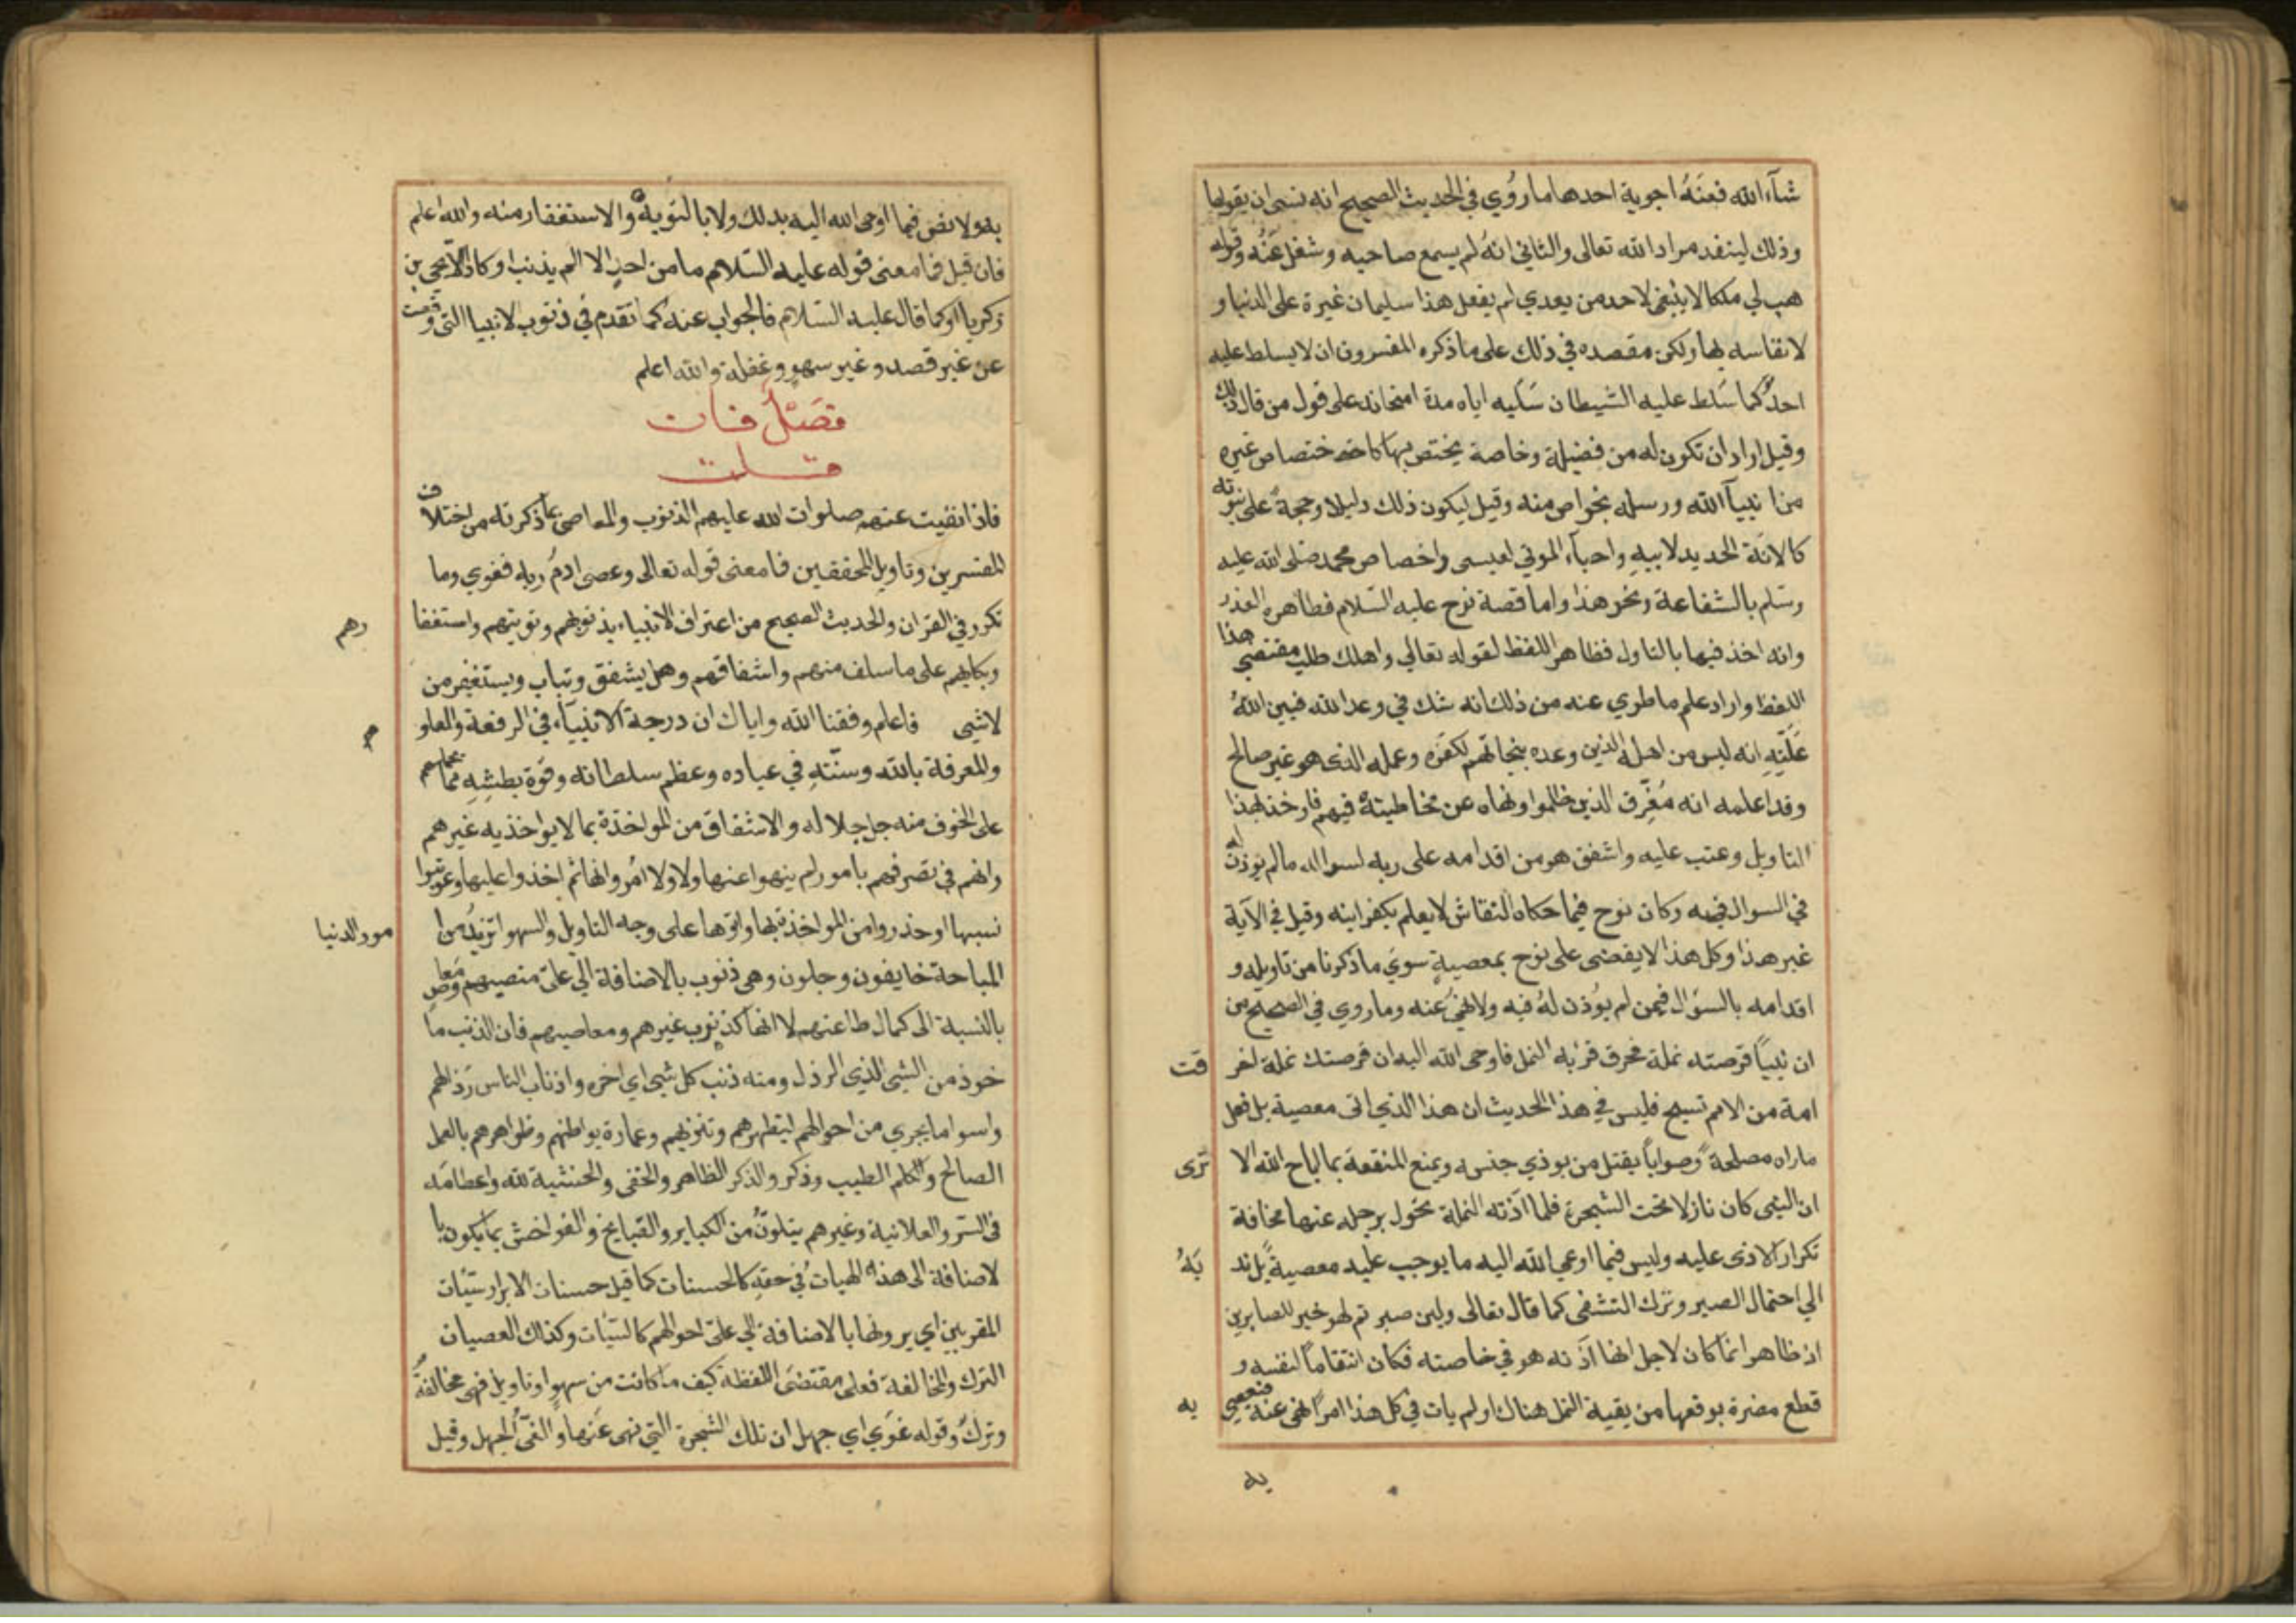 شآء الله فعنه اجوبة احدها ما روي في الحديث الصحيح انه نسى ان يقولها
وذلك لينفد مراد الله تعالى والثاني انه لم يسمع صاحبه وشغل عنه وقوله
هب لي ملكا لا ينبغي لاحد من بعدي لم يفعل هذا سليمان غيرة على الدنيا و
لا نفاسه لها ولكن مقصده في ذلك على ما ذكره المفسرون ان لا يسلط عليه
احد كما سلط عليه الشيطان سلبه اياه مدة امتحانه على قول من قال ذلك
وقيل اراد ان تكون له من فضيلة وخاصة يختص بها كاختصاص غيره
من انبيآ الله ورسله بخواص منه وقيل ليكون ذلك دليلا وحجة على نبوته
كالانة الحديد لابيه واحيآء الموتي لعيسى واختصاص محمد صلى الله عليه
وسلم بالشفاعة ونحو هذا واما قصة نوح عليه السلام فظاهره العذر
وانه اخذ فيها بالتاول فظاهر اللفظ لقوله تعالي واهلك طلب مقتضى هذا
اللفظ واراد علم ما طوي عنه من ذلك انه شك في وعد الله فبين الله
عليه انه ليس من اهله الذين وعده بنجاتهم لكفره وعمله الذى هو غير صالح
وقد اعلمه انه مغرق الذين ظلموا ونهاه عن مخاطبته فيهم فاوخذ بهذا
التاويل وعتب عليه واشفق هو من اقدامه على ربه لسواله ما لم يوذن له
في السوال فيه وكان نوح فيما حكاه النقاش لا يعلم بكفر ابنه وقيل في الآية
غير هذا وكل هذا لا يقضى على نوح بمعصية سوي ما ذكرنا من تاويله و
اقدامه بالسؤال فيمن لم يؤذن له فيه ولا نهي عنه وما روي في الصحيح من
ان نبيا قرصته نملة فحرق قرية النمل فاوحى الله اليه ان قرصتك نملة احر قت
امة من الامم تسبح فليس في هذا الحديث ان هذا الذي اتى معصية بل فعل
ما راه مصلحة وصوابا بقتل من يوذي جنسه ويمنع المنفعة بما اباح الله الا ترى
ان النبى كان نازلا تحت الشجرة فلما اذته النملة تحول برحله عنها مخافة
تكرار الاذى عليه وليس فيما اوحي الله اليه ما يوجب عليه معصية بل ند به
الي احتمال الصبر وترك التشفى كما قال تعالى ولين صبرتم لهو خير للصابرين
اذ ظاهر انما كان لاجل انها اذته هو في خاصته فكان انتقاما لنفسه و
قطع مضرة يوقعها من بقية النمل هناك ولم يات في كل هذا امرا نهى عنه فيعصى به
به
به ولا نص فيما اوحى الله اليه بذلك ولا بالتوبة والاستغفار منه والله اعلم
فان قيل فما معنى قوله عليه السلام ما من احد الا الم بذنب او كاد الا يحيى بن
زكريا او كما قال عليه السلام فالجواب عنه كما تقدم في ذنوب الانبيا التى وقعت
عن غير قصد وغير سهو وغفلة والله اعلم
فصل فان
قلت
فاذا نفيت عنهم صلوات الله عليهم الذنوب والمعاصى بما ذكرته من اختلاف
المفسرين وتاويل المحققين فما معنى قوله تعالى وعصى ادم ربه فغوي وما
تكرر في القران والحديث الصحيح من اعتراف الانبياء بذنوبهم وتوبتهم واستغفا رهم
وبكايهم على ما سلف منهم واشفاقهم وهل يشفق ويتاب ويستغفر من
لا شيى فاعلم وفقنا الله واياك ان درجة الانبيآء في الرفعة والعلو
والمعرفة بالله وسنته في عباده وعظم سلطانه وقوة بطشه مما يحملهم
على الخوف منه جل جلاله والاشفاق من المواخذة بما لا يواخذ به غيرهم
وانهم في تصرفهم بامور لم ينهوا عنها ولا ولا امروا بها ثم اخذوا عليها وعوتبوا
نسببها او حذروا من المواخذة بها واتوها على وجه التاويل والسهو او تزيد من ا مور الدنيا
المباحة خايفون وجلون وهي ذنوب بالاضافة الي على منصبهم ومعاص
بالنسبة الى كمال طاعتهم لا انها كذنوب غيرهم ومعاصيهم فان الذنب ما
خوذ من الشيى الذي الرذل ومنه ذنب كل شيى اي اخره واذناب الناس رذالهم
واسوا ما يجري من احوالهم لتطهيرهم وتنزيههم وعمارة بواطنهم وظواهرهم بالعمل
الصالح والكلم الطيب وذكر والذكر الظاهر والخفى والخشية لله واعظامه
فى السر والعلانية وغيرهم يتلوث من الكباير والقبايح والفواحش بما يكون با
لاضافة الى هذه الهيات في حقه كالحسنات كما قيل حسنات الابرار سيئات
المقربين اي يرونها بالاضافة الي على احوالهم كالسيئات وكذلك العصيان
الترك والمخالفة فعلى مقتضى اللفظة كيف ما كانت من سهو او تاويل فهى مخالفة
وترك وقوله غوي اي جهل ان تلك الشجرة التي نهى عنها والغي الجهل وقيل